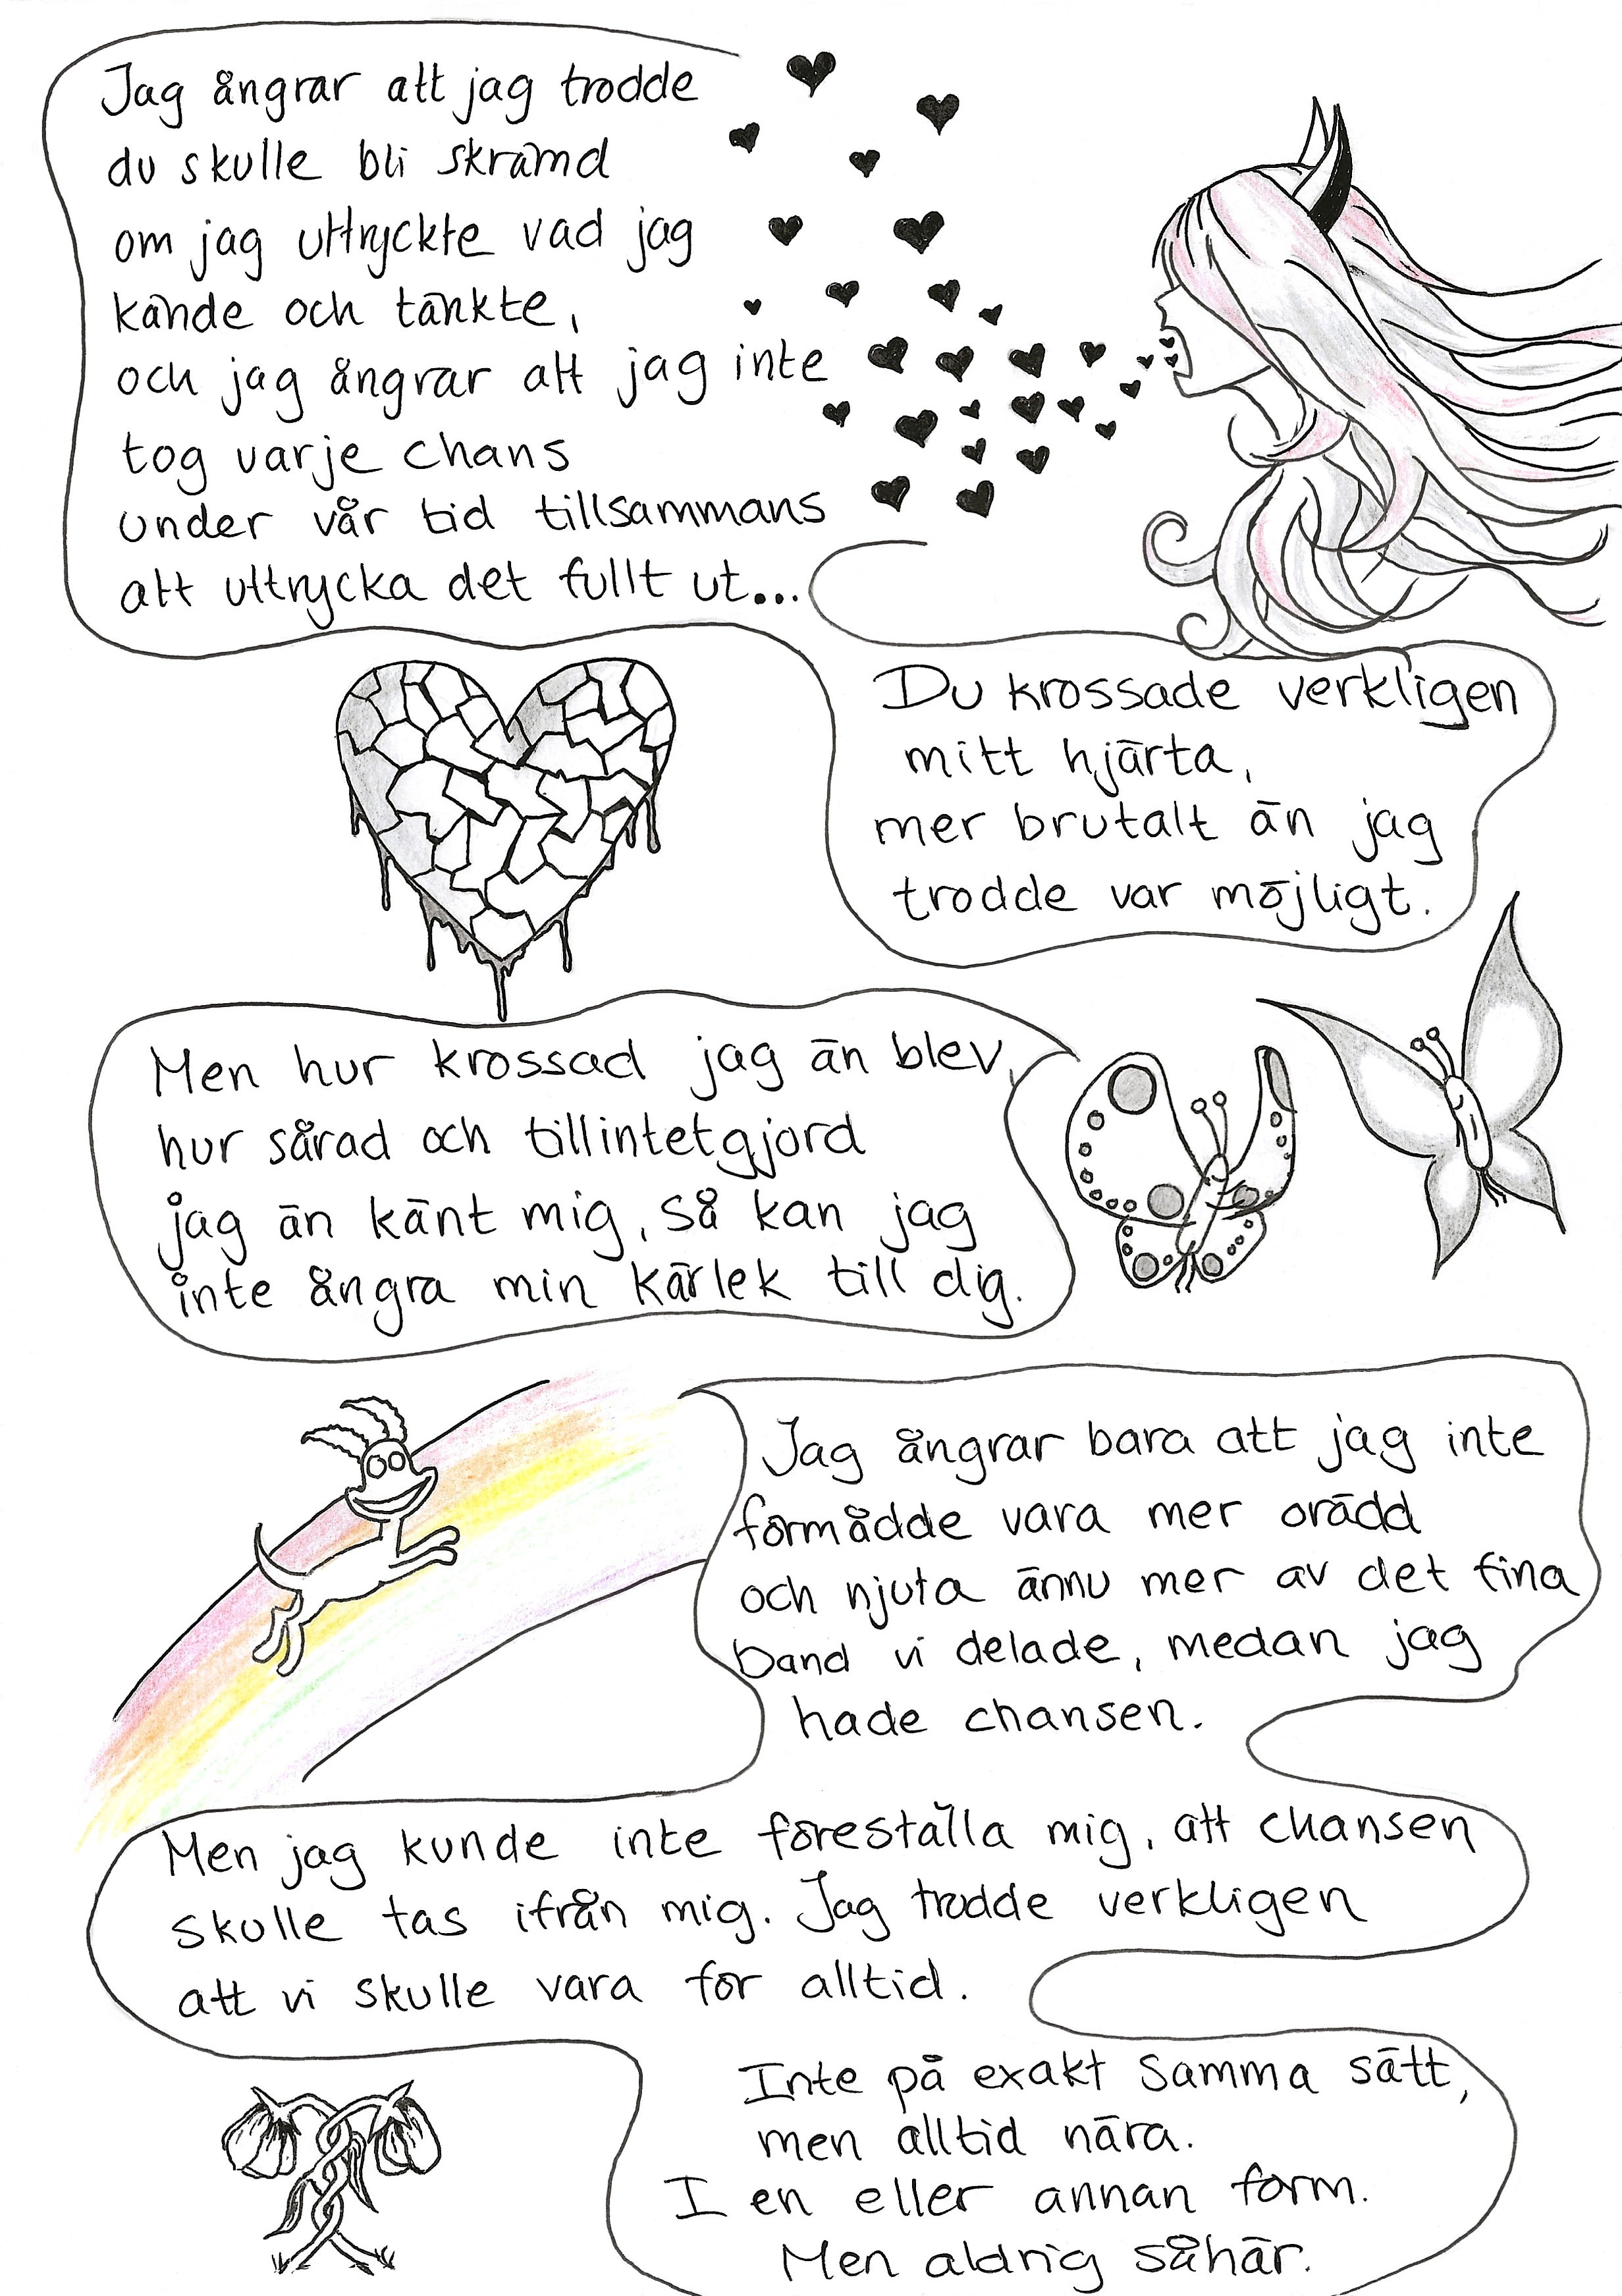 Jag ångrar att jag trodde
du skulle bli skrämd
om jag uttryckte vad jag
kände och tänkte,
och jag ångrar att jag inte
tog varje chans
under vår tid tillsammans
att uttrycka det fullt ut...
Du krossade verkligen
mitt hjärta,
mer brutalt än jag
trodde var möjligt.
Men hur krossad jag än blev,
hur sårad och tillintetgjord
jag än känt mig, så kan jag
inte ångra min kärlek till dig.
Jag ångrar bara att jag inte
förmådde vara mer orädd
och njuta ännu mer av det fina
band vi delade, medan jag
hade chansen.
Men jag kunde inte föreställa mig, att chansen
skulle tas ifrån mig. Jag trodde verkligen
att vi skulle vara för alltid.
Inte på exakt samma sätt,
men alltid nära.
I en eller annan form.
Men aldrig såhär.